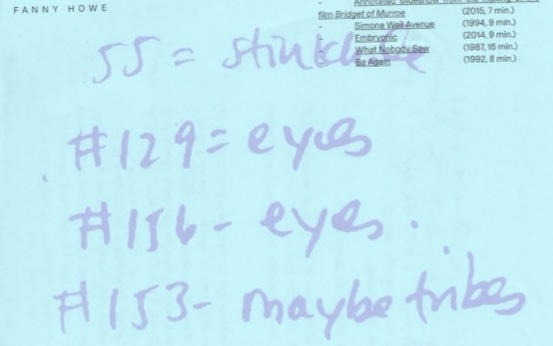 FANNY HOWE
- Annotated slideshow from the making of the
film Bridget of Murroe (2015, 7 min.)
- Simone Weil Avenue (1994, 9 min.)
- Embryonic (2014, 9 min.)
- What Nobody Saw (1987, 16 min.)
- Be Again (1992, 8 min.)
55 =
#129 = eyes
#156 - eyes.
#153 - maybe tribes